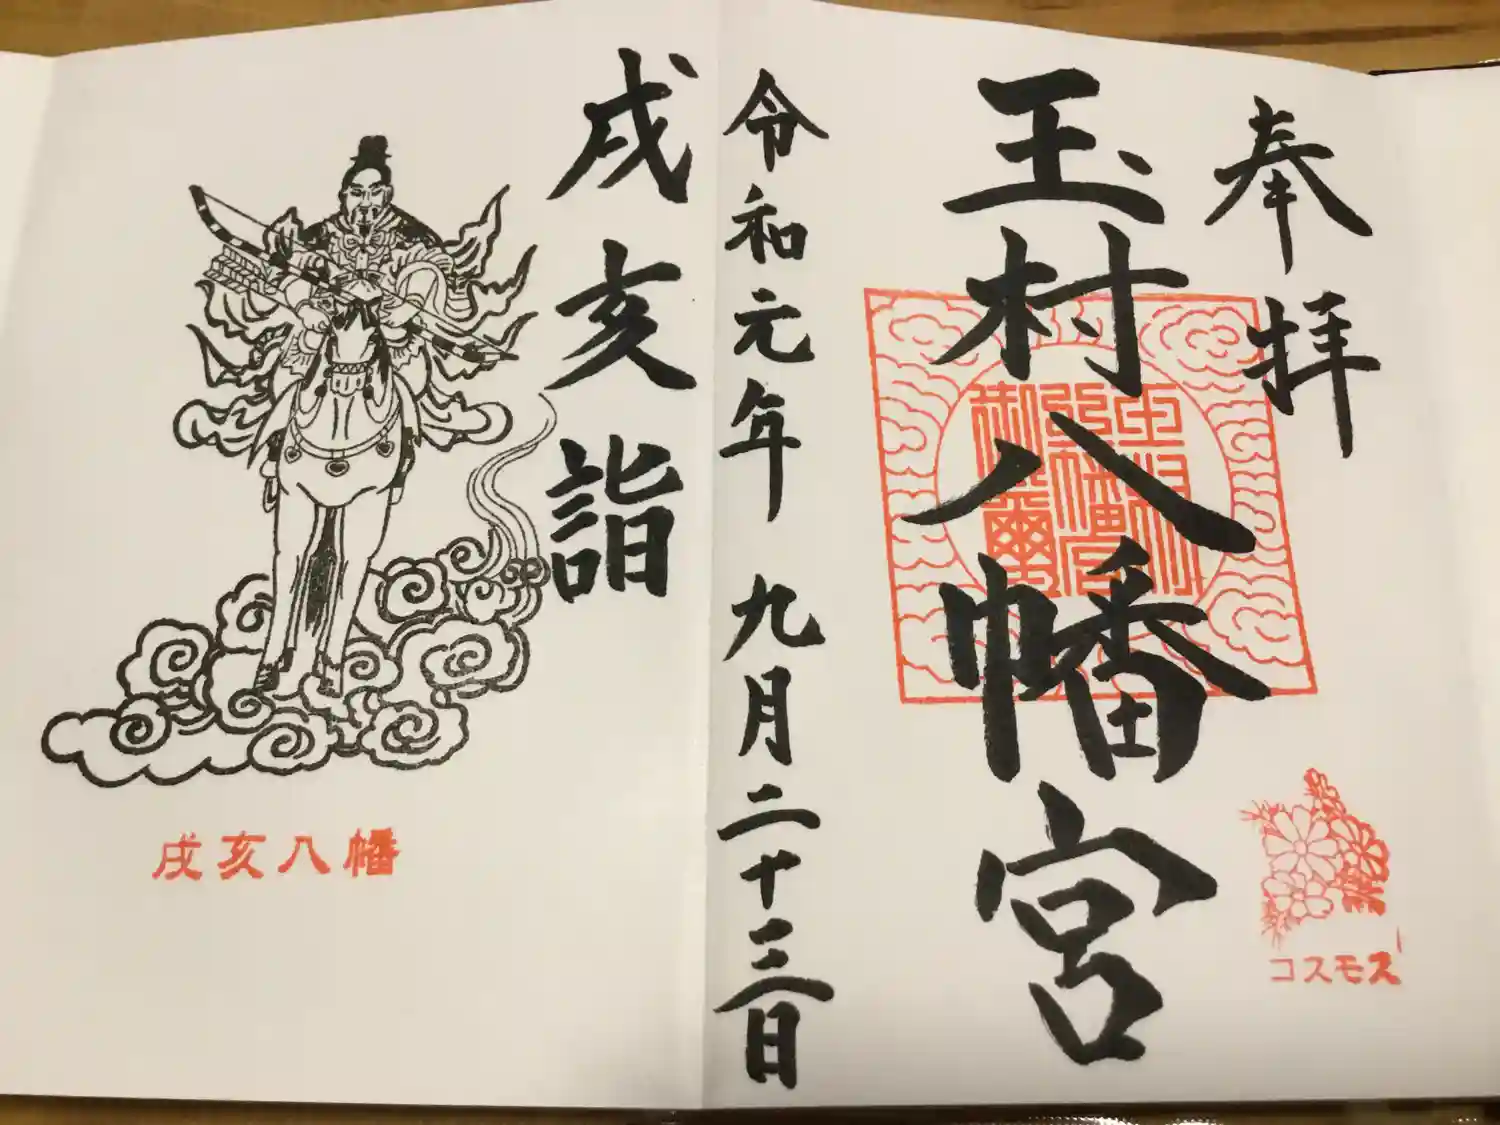 奉拝
玉村八幡宮
玉村
八幡宮
御璽
コスモス
令和元年 九月二十三日
戌亥詣
戌亥八幡